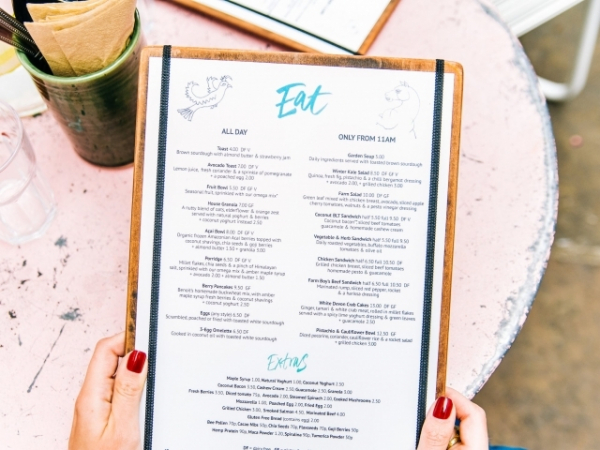 Eat
ALL DAY
Toast 4.00 DF V
Brown sourdough with almond butter & strawberry jam
Avocado Toast 7.00 DF
Lemon juice, fresh coriander & a sprinkle of pomegranate
+ a poached egg 2.00
Fruit Bowl 5.50 DF GF V
Seasonal fruit, sprinkled with our omega mix*
House Granola 7.00 GF
A nutty blend of oats, elderflower & orange zest
served with natural yoghurt & berries
+ coconut yoghurt
Açaí Bowl
Organic frozen Amazonian fruit berries topped with
coconut shavings, chia seeds & goji berries
+ almond butter 1.50 + granola 3.00
Porridge 6.50 DF V
Millet flakes, chia seeds & a pinch of Himalayan
salt, sprinkled with our omega mix & amber maple syrup
+ avocado 2.00 + almond butter 1.50
Berry Pancakes 9.50 GF
homemade buckwheat mix with amber
maple syrup fresh berries & coconut shavings
+ coconut yoghurt 2.50
Eggs (any style) 6.50 DF
Scrambled, poached or fried with toasted white sourdough
3-Egg Omelette 6.50 DF
Cooked in coconut oil with toasted white sourdough
ONLY FROM 11AM
Garden Soup 5.00
Daily ingredients served with toasted brown sourdough
Winter Kale Salad
Quinoa, fresh fig, pistachio & a child bergamot dressing
+ avocado 2.00 + grilled chicken 3.00
Farm Salad 10.00 DF GF
Green leaf mixed with chicken breast, avocado, sliced apple
cherry tomatoes, walnuts & a petite vinegar dressing
Coconut BLT Sandwich half 5.50 full 9.50 DF V
Coconut bacon*, sliced beef tomatoes
guacamole & homemade cashew cream
Vegetable & Herb Sandwich half 5.50 full 9.50
Daily roasted vegetables, buffalo mozzarella
tomatoes & olive oil
Chicken Sandwich half 6.50 full 10.50 DF
Grilled chicken breast, sliced beef tomatoes
homemade pesto & guacamole
Farm Boy's Beef Sandwich half 6.50 full 10.50 DF
Marinated rump, sliced red pepper, rocket
& a harissa dressing
White Devon Crab Cakes 13.00 DF GF
Ginger, lemon & white crab meat, rolled in millet flakes
served with a spicy lime yoghurt dressing & green leaves
+ guacamole 2.50
Pistachio & Cauliflower Bowl 12.50 GF
+ grilled chicken 3.00
Extras
Maple Syrup 1.00, Natural Yoghurt 1.00, Coconut Yoghurt 2.50
Coconut Bacon 3.50, Cashew Cream 2.50, Guacamole 2.50, Granola 3.00
Fresh Berries 3.50, Dried tomato 75p, Avocado 2.00, Steamed Spinach 2.00, Cooked Mushrooms 2.50
Mozzarella 3.00, Poached Egg 2.00, Fried Egg 2.00
Grilled Chicken 3.00, Smoked Salmon 4.50, Marinated Beef 6.00
Gluten Free Bread (contains egg) 2.00
Bee Pollen 70p, Cacao Nibs 50p, Chia Seeds 70p, Flaxseeds 70p, Goji Berries 90p
Hemp Protein 90p, Maca Powder 1.00, Spirulina 90p, Turmeric Powder 90p